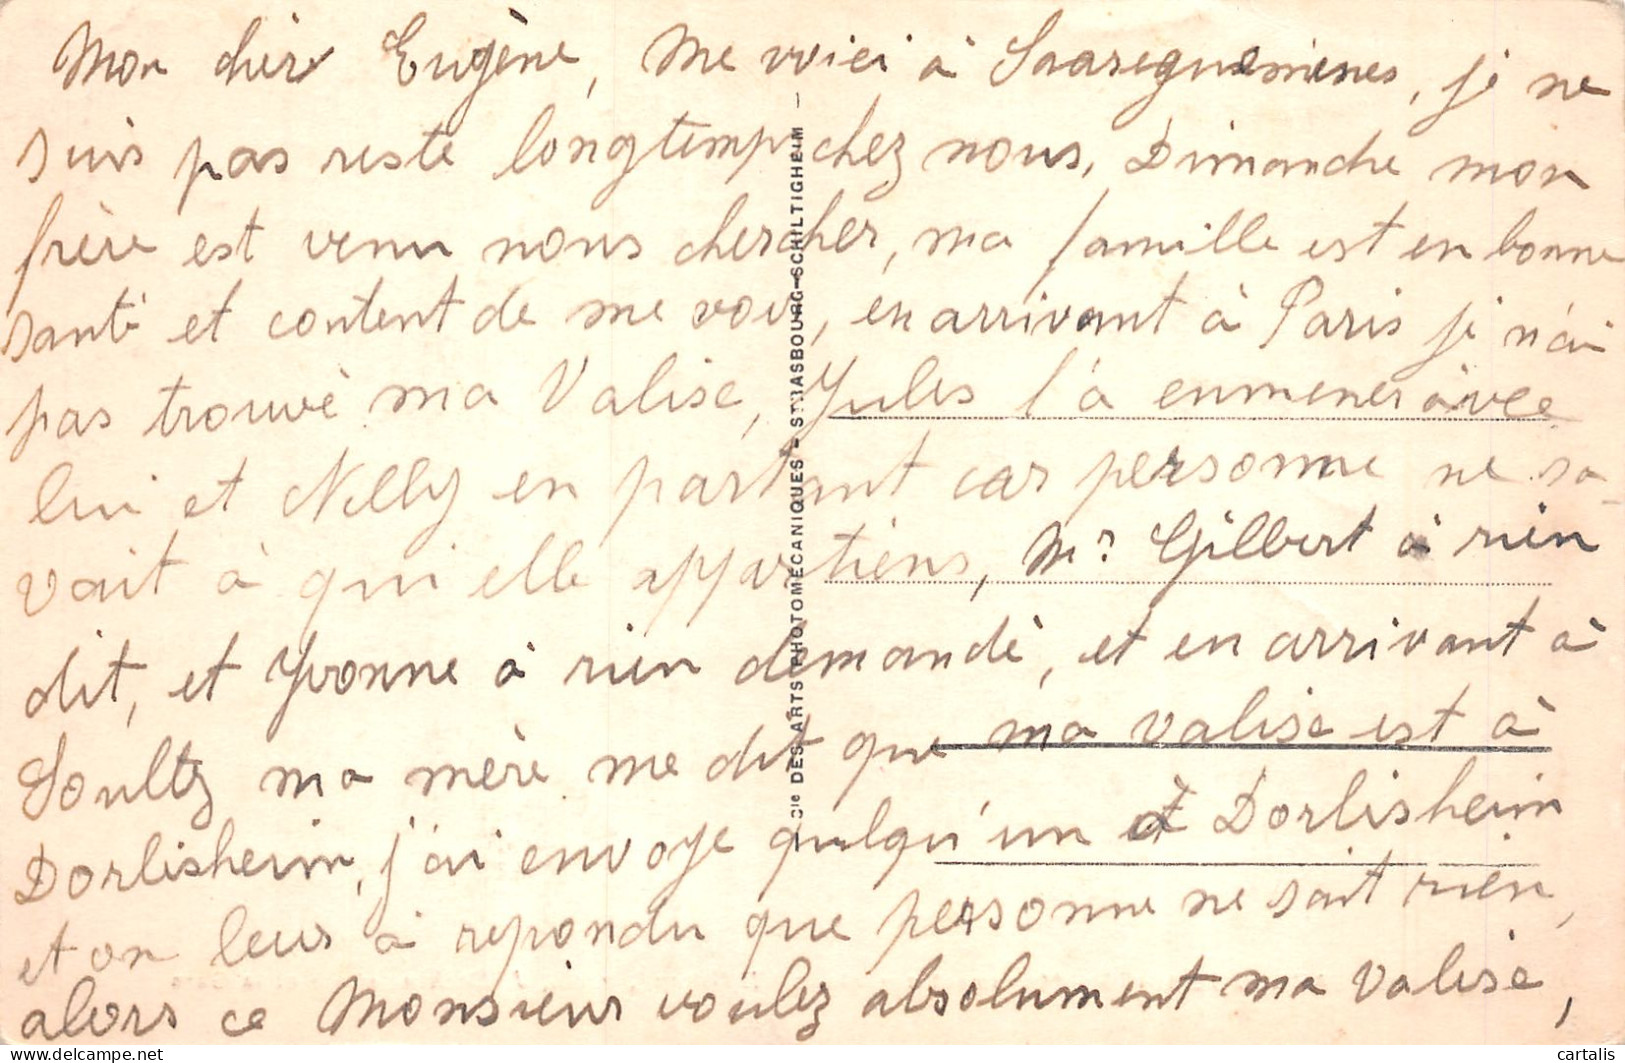 Mon cher Eugène, Me voici à Saareguemines, je ne
suis pas reste longtemps chez nous, Dimanche mon
frère est venu nous chercher, ma famille est en bonne
santé et content de me voir, en arrivant à Paris je n'ai
pas trouvè ma Valise, Jules l'a enmener àvec
lui et Nelly en partant car personne ne sa-
vait à qui elle appartiens, Mr Gilbert à rien
dit, et Yvonne à rien demandè, et en arrivant à
Soultz ma mère me dit que ma valise est à
Dorlisheim, j'ai envoye quelqu'un à Dorlisheim
et on leur à repondu que personne ne sait rien,
alors ce Monsieur voulez absolument ma Valise,
Cie DES ARTS PHOTOMECANIQUES - STRASBOURG-SCHILTIGHEIM
cartalis